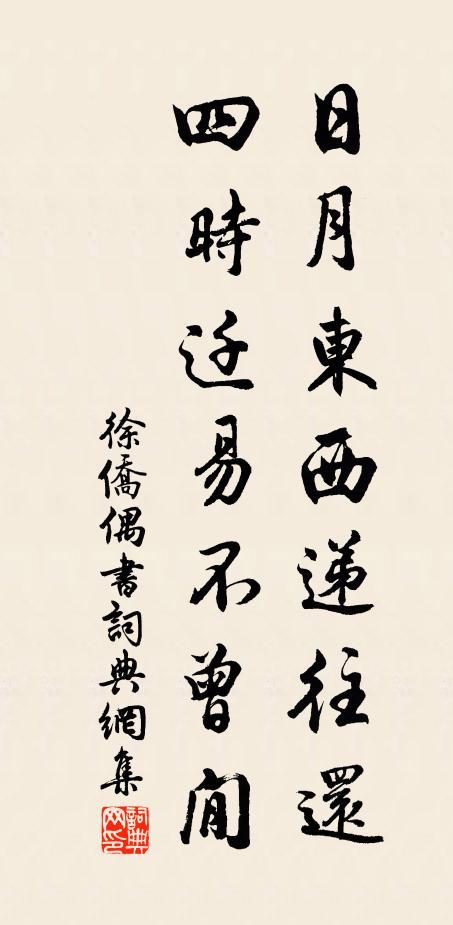 日月東西递往還
四時迁易不曾閒
徐僑偶書詞典網集
詞典网印